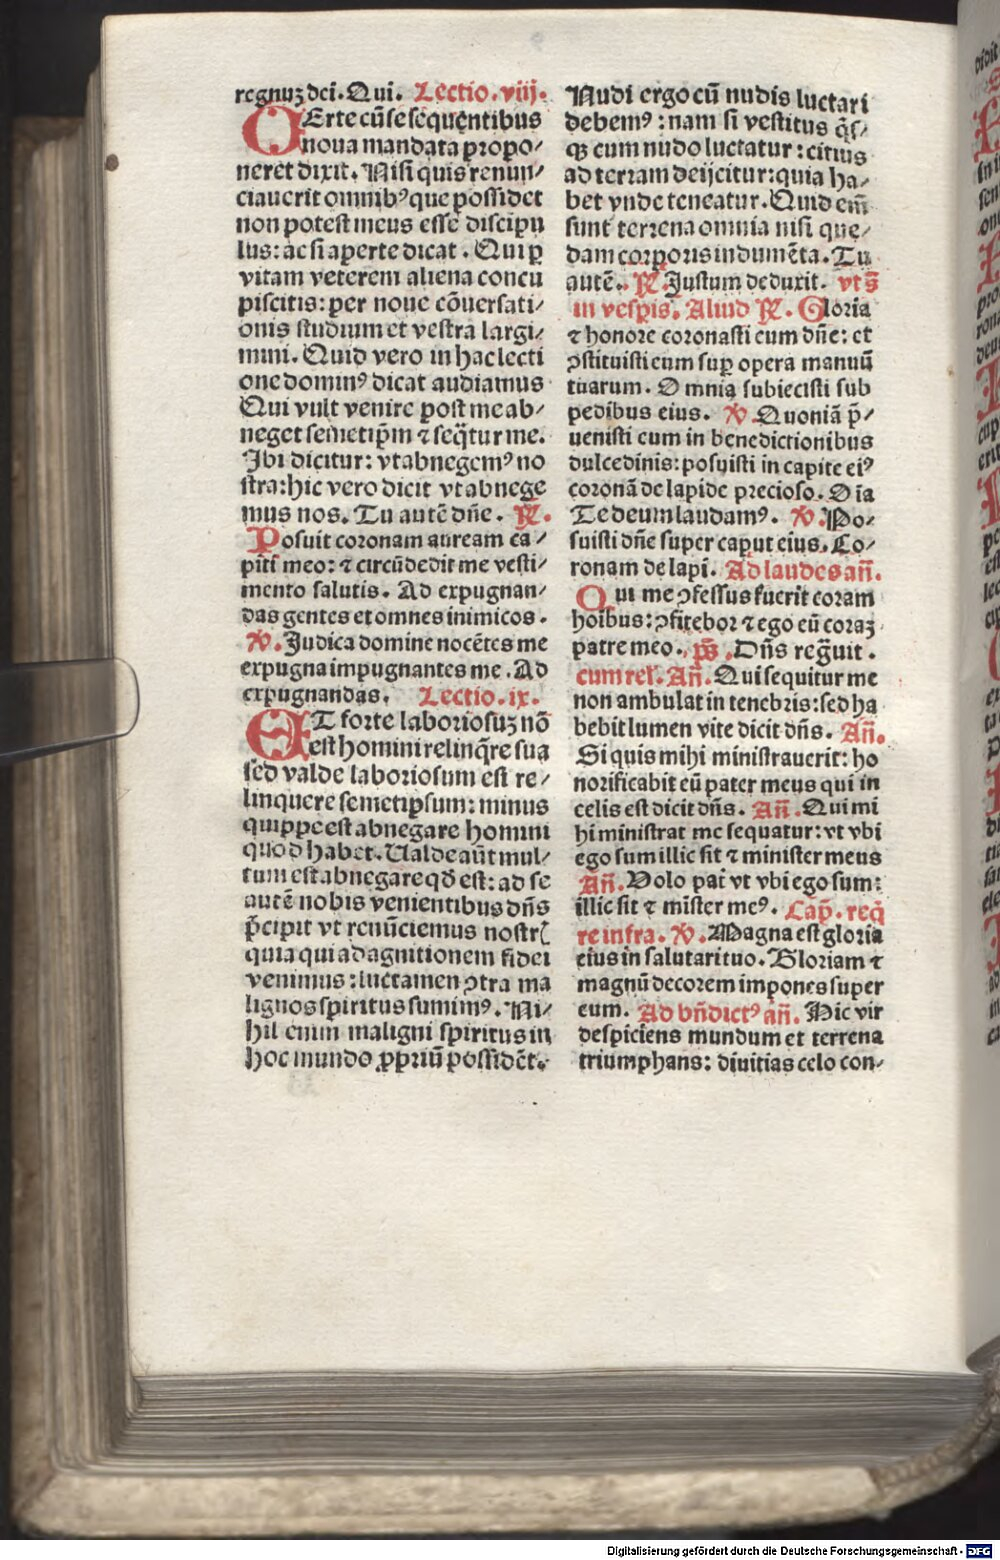 regnuʒ dei. Qui. Lectio. viij.
CErte cū se sequentibus
noua mandata propo/
neret dixit. Nisi quis renun/
ciauerit omnibꝰ que possidet
non potest meus esse discipu
lus: ac si aperte dicat. Qui ꝑ
vitam veterem aliena concu
piscitis: per noue cōuersati/
onis studium et vestra largi/
mini. Quid vero in hac lecti
one dominꝰ dicat audiamus
Qui vult venire post me ab/
neget semetip̄m ⁊ seq̄tur me.
Ibi dicitur: vt abnegemꝰ no
stra: hic vero dicit vt abnege
mus nos. Tu autē dn̄e. R̄.
Posuit coronam auream ca/
piti meo: ⁊ circūdedit me vesti/
mento salutis. Ad expugnan/
das gentes et omnes inimicos.
V̄. Judica domine nocētes me
expugna impugnantes me. Ad
expugnandas. Lectio. ix.
ET forte laboriosuʒ nō
est homini relinq̄re sua
sed valde laboriosum est re/
linquere semetipsum: minus
quippe est abnegare homini
quod habet. Ualde aūt mul/
tum est abnegare qd̄ est: ad se
autē nobis venientibus dn̄s
p̄cipit vt renūciemus nostrꝭ
quia qui ad agnitionem fidei
venimus: luctamen ꝯtra ma
lignos spiritus sumimꝰ. Ni/
hil enim maligni spiritus in
hoc mundo ꝓpriū possidēt.
Nudi ergo cū nudis luctari
debemꝰ: nam si vestitus q̄s/
qꝫ cum nudo luctatur: citius
ad terram deijcitur: quia ha/
bet vnde teneatur. Quid em̄
sunt terrena omnia nisi que/
dam corporis indumēta. Tu
autē. R̄. Justum deduxit. vt s̄
in vesp̄is. Aliud R̄. Gloria
⁊ honore coronasti eum dn̄e: et
ꝯstituisti eum suꝑ opera manuū
tuarum. Omnia subiecisti sub
pedibus eius. V̄. Quoniā p̄/
uenisti eum in benedictionibus
dulcedinis: posuisti in capite eiꝰ
coronā de lapide precioso. Oīa
Te deum laudamꝰ. V̄. Po/
suisti dn̄e super caput eius. Co/
ronam de lapi. Ad laudes an̄.
Qui me ꝯfessus fuerit coram
hoībus: ꝯfitebor ⁊ ego eū coraʒ
patre meo. ps̄. Dn̄s reg̅uit.
cum rel. An̄. Qui sequitur me
non ambulat in tenebris: sed ha
bebit lumen vite dicit dn̄s. An̄.
Si quis mihi ministrauerit: ho
norificabit eū pater meus qui in
celis est dicit dn̄s. An̄. Qui mi
hi ministrat me sequatur: vt vbi
ego sum illic sit ⁊ minister meus
An̄. Volo pat̄ vt vbi ego sum:
illic sit ⁊ mister meꝰ. Cap̄. req̄
re infra. V̄. Magna est gloria
eius in salutari tuo. Gloriam ⁊
magnū decorem impones super
eum. Ad bn̄dictꝰ an̄. Hic vir
despiciens mundum et terrena
triumphans: diuitias celo con/
Digitalisierung gefördert durch die Deutsche Forschungsgemeinschaft - DFG